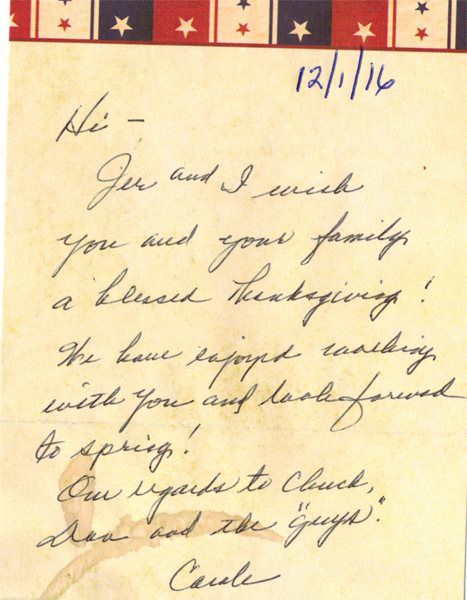 12/1/16
Hi -
Jer and I wish
you and your family
a blessed Thanksgiving!
We have enjoyed working
with you and look forward
to spring!
Our regards to Chuck,
and the "guys".
Carole